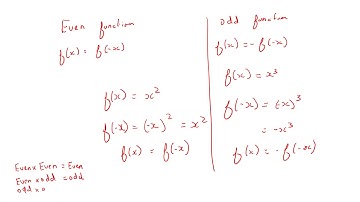 Even function
f(x) = f(-x)
f(x) = x²
f(-x) = (-x)² = x²
f(x) = f(-x)
Even x Even = Even
Even x odd = odd
odd x o
odd function
f(x) = - f(-x)
f(x) = x³
f(-x) = (-x)³
= -x³
f(x) = - f(-x)